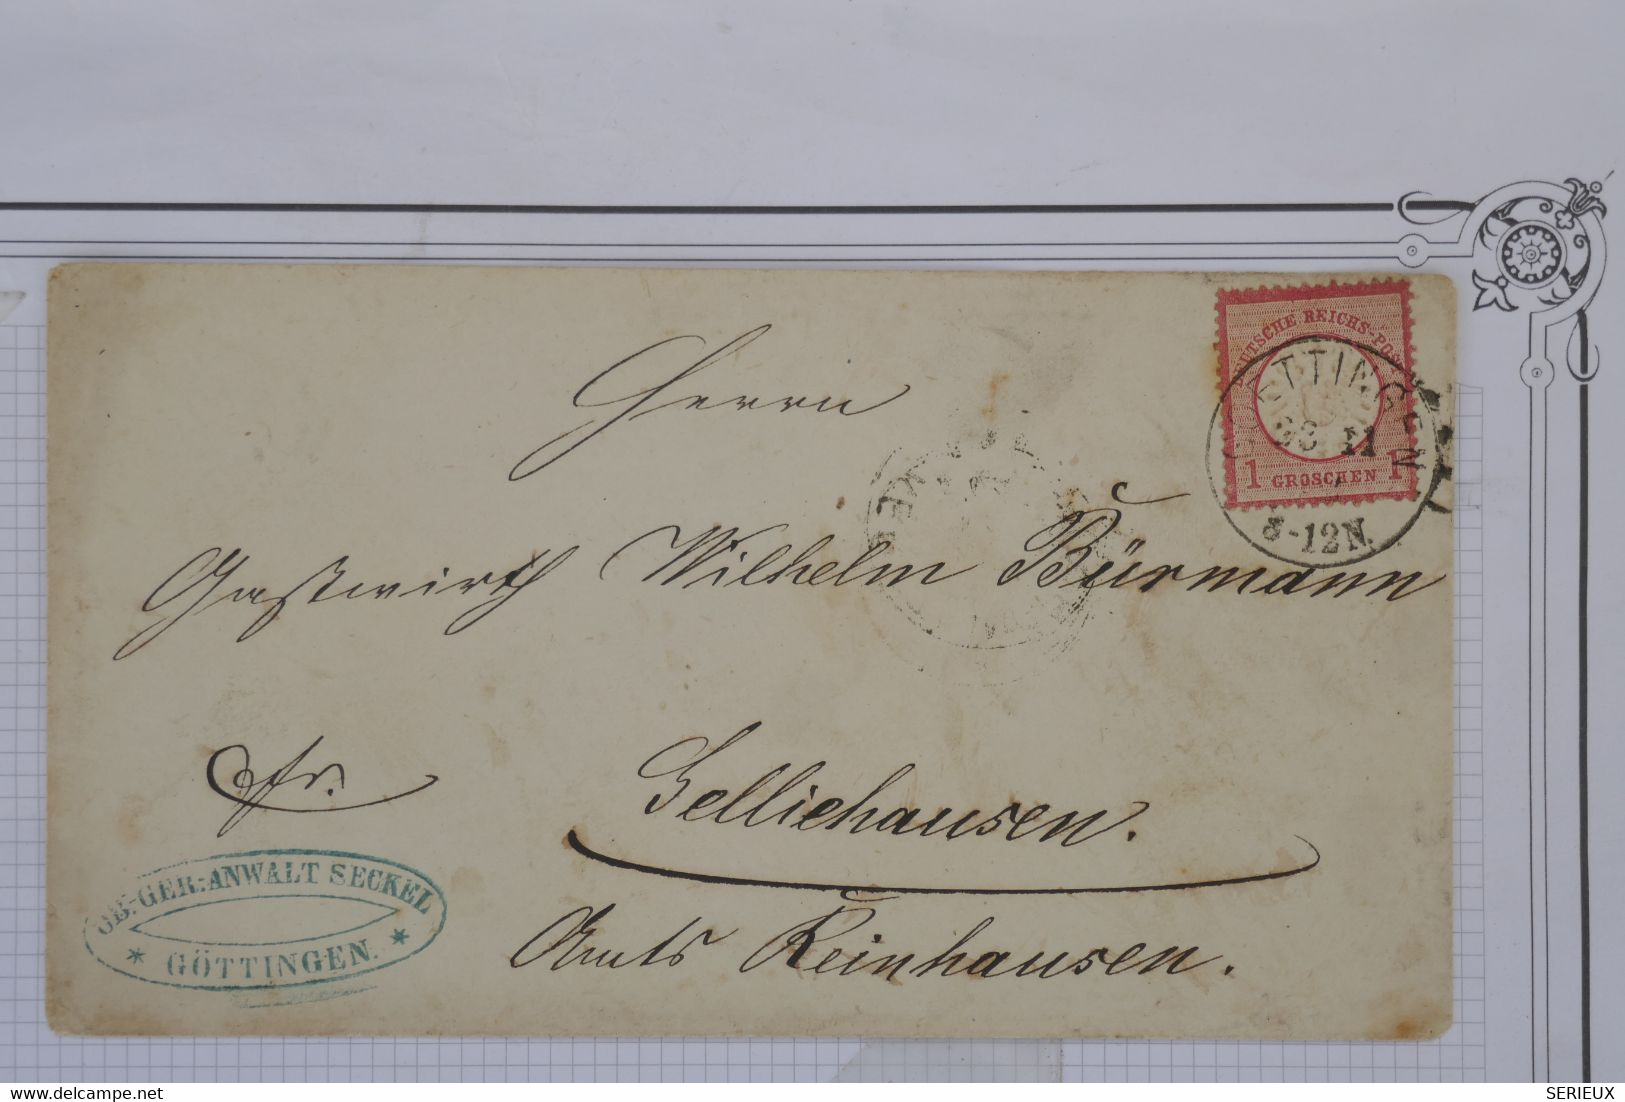 DEUTSCHE REICHS-POST
1 GROSCHEN 1
GOETTINGEN
11
8-12N.
Herrn
Gastwirth Wilhelm Bürmann
fr.
Gelliehausen.
Amts Reinhausen.
OB.-GER.-ANWALT SECKEL
* GÖTTINGEN. *
delcampe.net
SERIEUX